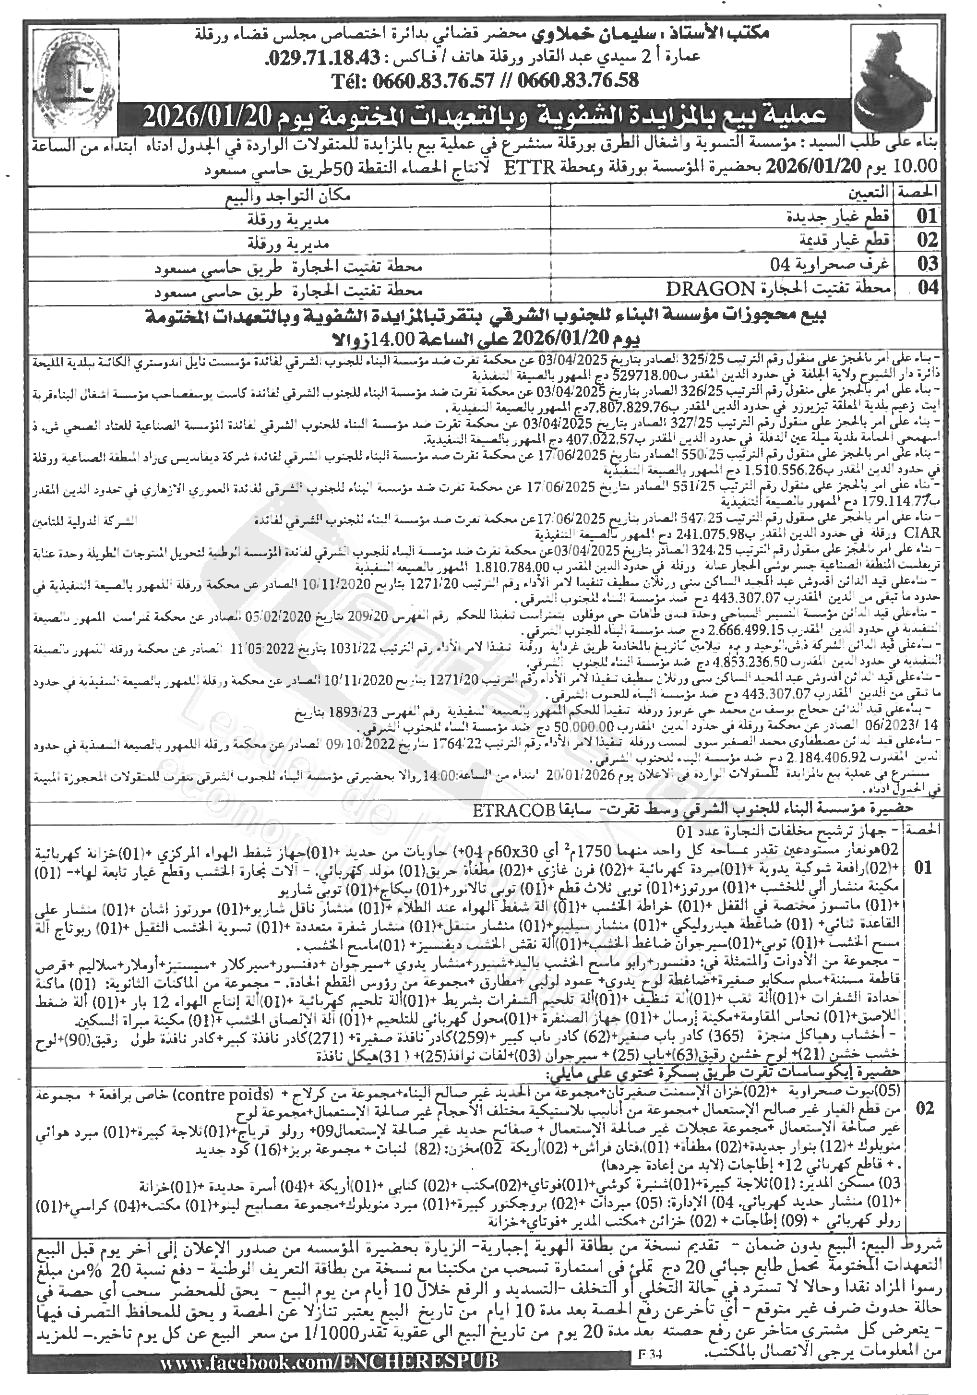 مكتب الأستاذ : سليمان خملاوي محضر قضائي بدائرة اختصاص مجلس قضاء ورقلة
عمارة أ 2 سيدي عبد القادر ورقلة هاتف / فاكس : 029.71.18.43.
Tél: 0660.83.76.57 // 0660.83.76.58
عملية بيع بالمزايدة الشفوية وبالتعهدات المختومة يوم 2026/01/20
بناء على طلب السيد : مؤسسة التسوية واشغال الطرق بورقلة سنشرع في عملية بيع بالمزايدة للمنقولات الواردة في الجدول ادناه ابتداء من الساعة
10.00 يوم 2026/01/20 بحضيرة المؤسسة بورقلة وبمحطة ETTR لانتاج الحصاء النقطة 50طريق حاسي مسعود
الحصة التعيين مكان التواجد والبيع
01 قطع غيار جديدة مديرية ورقلة
02 قطع غيار قديمة مديرية ورقلة
03 غرف صحراوية 04 محطة تفتيت الحجارة طريق حاسي مسعود
04 محطة تفتيت الحجارة DRAGON محطة تفتيت الحجارة طريق حاسي مسعود
بيع محجوزات مؤسسة البناء للجنوب الشرقي بتقرتبالمزايدة الشفوية وبالتعهدات المختومة
يوم 2026/01/20 على الساعة 14.00زوالا
- بناء على أمر بالحجز على منقول رقم الترتيب 325/25 الصادر بتاريخ 03/04/2025 عن محكمة تقرت ضد مؤسسة البناء للجنوب الشرقي لفائدة مؤسسة نايل اندوستري الكائنة ببلدية المليحة
دائرة دار الشيوخ ولاية الجلفة في حدود الدين المقدر ب529718.00 دج الممهور بالصيغة التنفيذية
- بناء على امر بالحجز على منقول رقم الترتيب 326/25 الصادر بتاريخ 03/04/2025 عن محكمة تقرت ضد مؤسسة البناء للجنوب الشرقي لفائدة كاست يوسفصاحب مؤسسة اشغال البناءقرية
ايت زعيم بلدية المعلقة تيزيوزو في حدود الدين المقدر ب7.807.829.76دج الممهور بالصيغة التنفيذية .
- بناء على أمر بالحجز على منقول رقم الترتيب 327/25 الصادر بتاريخ 03/04/2025 عن محكمة تقرت ضد مؤسسة البناء للجنوب الشرقي لفائدة المؤسسة الصناعية للعتاد الصحي ش. ذ
اسهمحي الحمامة بلدية ميلة عين الدفلة في حدود الدين المقدر ب407.022.57 دج الممهور بالصيغة التنفيذية.
- بناء على أمر بالحجز على منقول رقم الترتيب 550/25 الصادر بتاريخ 17/06/2025 عن محكمة تقرت ضد مؤسسة البناء للجنوب الشرقي لفائدة شركة ديفانديس ي/راد المنطقة الصناعية ورقلة
في حدود الدين المقدر ب1.510.556.26 دج الممهور بالصيغة التنفيذية
- بناء على أمر بالحجز على منقول رقم الترتيب 551/25 الصادر بتاريخ 17/06/2025 عن محكمة تقرت ضد مؤسسة البناء للجنوب الشرقي لفائدة العموري الازهاري في حدود الدين المقدر
ب179.114.77 دج الممهور بالصيغة التنفيذية
- بناء على أمر بالحجز على منقول رقم الترتيب 547/25 الصادر بتاريخ 17/06/2025عن محكمة تقرت ضد مؤسسة البناء للجنوب الشرقي لفائدة الشركة الدولية للتامين
CIAR ورقلة في حدود الدين المقدر ب241.075.98 دج الممهور بالصيغة التنفيذية
- بناء على أمر بالحجز على منقول رقم الترتيب 324/25 الصادر بتاريخ 03/04/2025عن محكمة تقرت ضد مؤسسة البناء للجنوب الشرقي لفائدة المؤسسة الوطنية لتحويل المنتوجات الطويلة وحدة عنابة
تريفلست المنطقة الصناعية جسر بوشي الحجار عنابة ورقلة في حدود الدين المقدر ب 1.810.784.00 دج الممهور بالصيغة التنفيذية
- بناءعلى قيد الدائن اقدوش عبد المجيد الساكن بني ورتلان سطيف تنفيذا لامر الأداء رقم الترتيب 1271/20 بتاريخ 10/11/2020 الصادر عن محكمة ورقلة الممهور بالصيغة التنفيذية في
حدود ما تبقى من الدين المقدرب 443.307.07 دج ضد مؤسسة البناء للجنوب الشرقي .
- بناءعلى قيد الدائن مؤسسة التسيير السياحي وحدة فندق طاهات حي موفلون بتمنراست تنفيذا للحكم رقم الفهرس 209/20 بتاريخ 05/02/2020 الصادر عن محكمة تمنراست الممهور بالصيغة
التنفيذية في حدود الدين المقدرب 2.666.499.15 دج ضد مؤسسة البناء للجنوب الشرقي .
- بناءعلى قيد الدائن الشركة ذ.ش.الوحيد و م.م تيلامين كاتريغ بالمخادمة طريق غرداية ورقلة تنفيذا لامر الأداء رقم الترتيب 1031/22 بتاريخ 11/05/2022 الصادر عن محكمة ورقلة الممهور بالصيغة
التنفيذية في حدود الدين المقدرب 4.853.236.50 دج ضد مؤسسة البناء للجنوب الشرقي.
- بناءعلى قيد الدائن اقدوش عبد المجيد الساكن بني ورتلان سطيف تنفيذا لامر الأداء رقم الترتيب 1271/20 بتاريخ 10/11/2020 الصادر عن محكمة ورقلة الممهور بالصيغة التنفيذية في حدود
ما تبقى من الدين المقدرب 443.307.07 دج ضد مؤسسة البناء للجنوب الشرقي .
- بناءعلى قيد الدائن حجاج يوسف بن محمد حي عزيوز ورقلة تنفيذا للحكم الممهور بالصيغة التنفيذية رقم الفهرس 1893/23 بتاريخ
06/2023/ 14 الصادر عن محكمة ورقلة في حدود الدين المقدرب 50.000.00 دج ضد مؤسسة البناء للجنوب الشرقي .
- بناءعلى قيد الدائن مصطفاوي محمد الصغير سوق السبت ورقلة تنفيذا لامر الأداء رقم الترتيب 1764/22 بتاريخ 09/10/2022 الصادر عن محكمة ورقلة الممهور بالصيغة التنفيذية في حدود
الدين المقدرب 2.184.406.92 دج ضد مؤسسة البناء للجنوب الشرقي .
سنشرع في عملية بيع بالمزايدة للمنقولات الواردة في الاعلان يوم 20/01/2026 ابتداء من الساعة:14:00زوالا بحضيرتي مؤسسة البناء للجنوب الشرقي بتقرت للمنقولات المحجوزة المبينة
في الجدول ادناه .
الحصة حضيرة مؤسسة البناء للجنوب الشرقي وسط تقرت- سابقا ETRACOB
01
- جهاز ترشيح مخلفات النجارة عدد 01
02هونغار مستودعين تقدر بمساحة كل واحد منهما 1750م² أي 60x30م 04+ حاويات من حديد +(01)جهاز شفط الهواء المركزي +(01)خزانة كهربائية
+(02)رافعة شوكية يدوية +(01)مبردة كهربائية +(02) فرن غازي +(02) مطفأة حريق(01) مولد كهربائي. - آلات نجارة الخشب وقطع غيار تابعة لها+- (01)
مكينة منشار ألي للخشب +(01) مورتوز+(01) توبي ثلاث قطع +(01) توبي تالاتور +(01) بيكاج+(01) توبي شاريو
+(01) ماتسوز مختصة في القفل +(01) خراطة الخشب +(01) الة شفط الهواء عند الطلاء +(01) منشار ناقل شاريو+(01) مورتوز اشان +(01) منشار على
القاعدة ثنائي+ (01) ضاغطة هيدروليكي +(01) منشار سيليبو+(01) منشار متنقل+(01) منشار شفرة متعددة +(01) تسوية الخشب الثقيل +(01) ربوتاج آلة
مسح الخشب +(01) توبي+(01)سيرجوان ضاغط الخشب+(01)ألة نقش الخشب ديفنسيز+(01)ماسح الخشب .
- مجموعة من الأدوات والمتمثلة في: دفنسور+رابو ماسح الخشب باليد+شنيور+منشار يدوي +سيرجوان +دفنسور+سيركلار +سيستيز+أوملار+سلاليم +قرص
قاطعة مسننة+سلم سكابو صغيرة+ضاغطة لوح يدوي+ عمود لولبي +مطارق+ مجموعة من رؤوس القطع الحادة. - مجموعة من الماكنات الثانوية: (01) ماكنة
حدادة الشفرات +(01)آلة ثقب +(01)آلة تنظيف +(01)ألة تلحيم الشفرات بشريط +(01)ألة تلحيم كهربائية +(01)ألة إنتاج الهواء 12 بار +(01) ألة ضغط
اللاصق+(01) نحاس المقاومة+مكينة إرسال +(01) جهاز الصنفرة +(01)محول كهربائي للتلحيم +(01) ألة الإلصاق الخشب +(01) مكينة مبراة السكين.
- أخشاب وهياكل منجزة (365) كادر باب صغير+(62) كادر باب كبير +(259)كادر نافذة صغيرة+ (271)كادر نافذة كبير+كادر نافذة طول رقيق(90)+لوح
خشب خشن (21)+ لوح خشن رقيق(63)+باب (25)+ سيرجوان (03)+لفات نوافذ(25)+ (31)هيكل نافذة
حضيرة إيكوساسات تقرت طريق بسكرة تحتوي على مايلي:
02
(05)بيوت صحراوية +(02)خزان الإسمنت صغيرتان+مجموعة من الحديد غير صالح البناء+مجموعة من كرلاج + (contre poids) خاص برافعة + مجموعة
من قطع الغيار غير صالح الإستعمال +مجموعة من أنابيب بلاستيكية مختلف الأحجام غير صالحة الإستعمال+مجموعة لوح
غير صالحة الإستعمال +مجموعة عجلات غير صالحة الإستعمال + صفائح حديد غير صالحة لإستعمال09+ رولو قرياج+(01)ثلاجة كبيرة+(01) مبرد هوائي
منوبلوك +(12) بنوار جديدة+(02) مطفأة+ (01)فتان فراش+ (02)أريكة 02مخزن: (82) لنبات + مجموعة بريز+(16) كود حديد
. + قاطع كهربائي 12+ إطاجات (لابد من إعادة جردها)
03 مسكن المدير: (01)ثلاجة كبيرة+(01)شنبرة كوشي+(01)فوتاي+(02)مكتب +(02) كنابي +(01)أريكة +(04) أسرة جديدة +(01)خزانة
+(01) منشار حديد كهربائي. 04 الإدارة: (05) مبردات +(02) بروجكتور كبيرة+(01) مبرد منوبلوك+مجموعة مصابيح لينو+(01) مكتب+(04) كراسي+(01)
رولو كهربائي + (09) إطاجات + (02) خزائن +مكتب المدير +فوتاي+خزانة
شروط البيع: البيع بدون ضمان - تقديم نسخة من بطاقة الهوية إجبارية- الزيارة بحضيرة المؤسسه من صدور الإعلان إلى آخر يوم قبل البيع
التعهدات المختومة تحمل طابع جبائي 20 دج تملئ في استمارة تسحب من مكتبنا مع نسخة من بطاقة التعريف الوطنية - دفع نسبة 20 %من مبلغ
رسوا المزاد نقدا وحالا لا تسترد في حالة التخلي أو التخلف -التسديد و الرفع خلال 10 أيام من يوم البيع - يحق للمحضر سحب أي حصة في
حالة حدوث ظرف غير متوقع - أي تأخرعن رفع الحصة بعد مدة 10 ايام من تاريخ البيع يعتبر تنازلا عن الحصة و يحق للمحافظ التصرف فيها
- يتعرض كل مشتري متاخر عن رفع حصته بعد مدة 20 يوم من تاريخ البيع الى عقوبة تقدر1/1000 من سعر البيع عن كل يوم تاخير.- للمزيد
من المعلومات يرجى الاتصال بالمكتب.
F 34
www.facebook.com/ENCHERESPUB